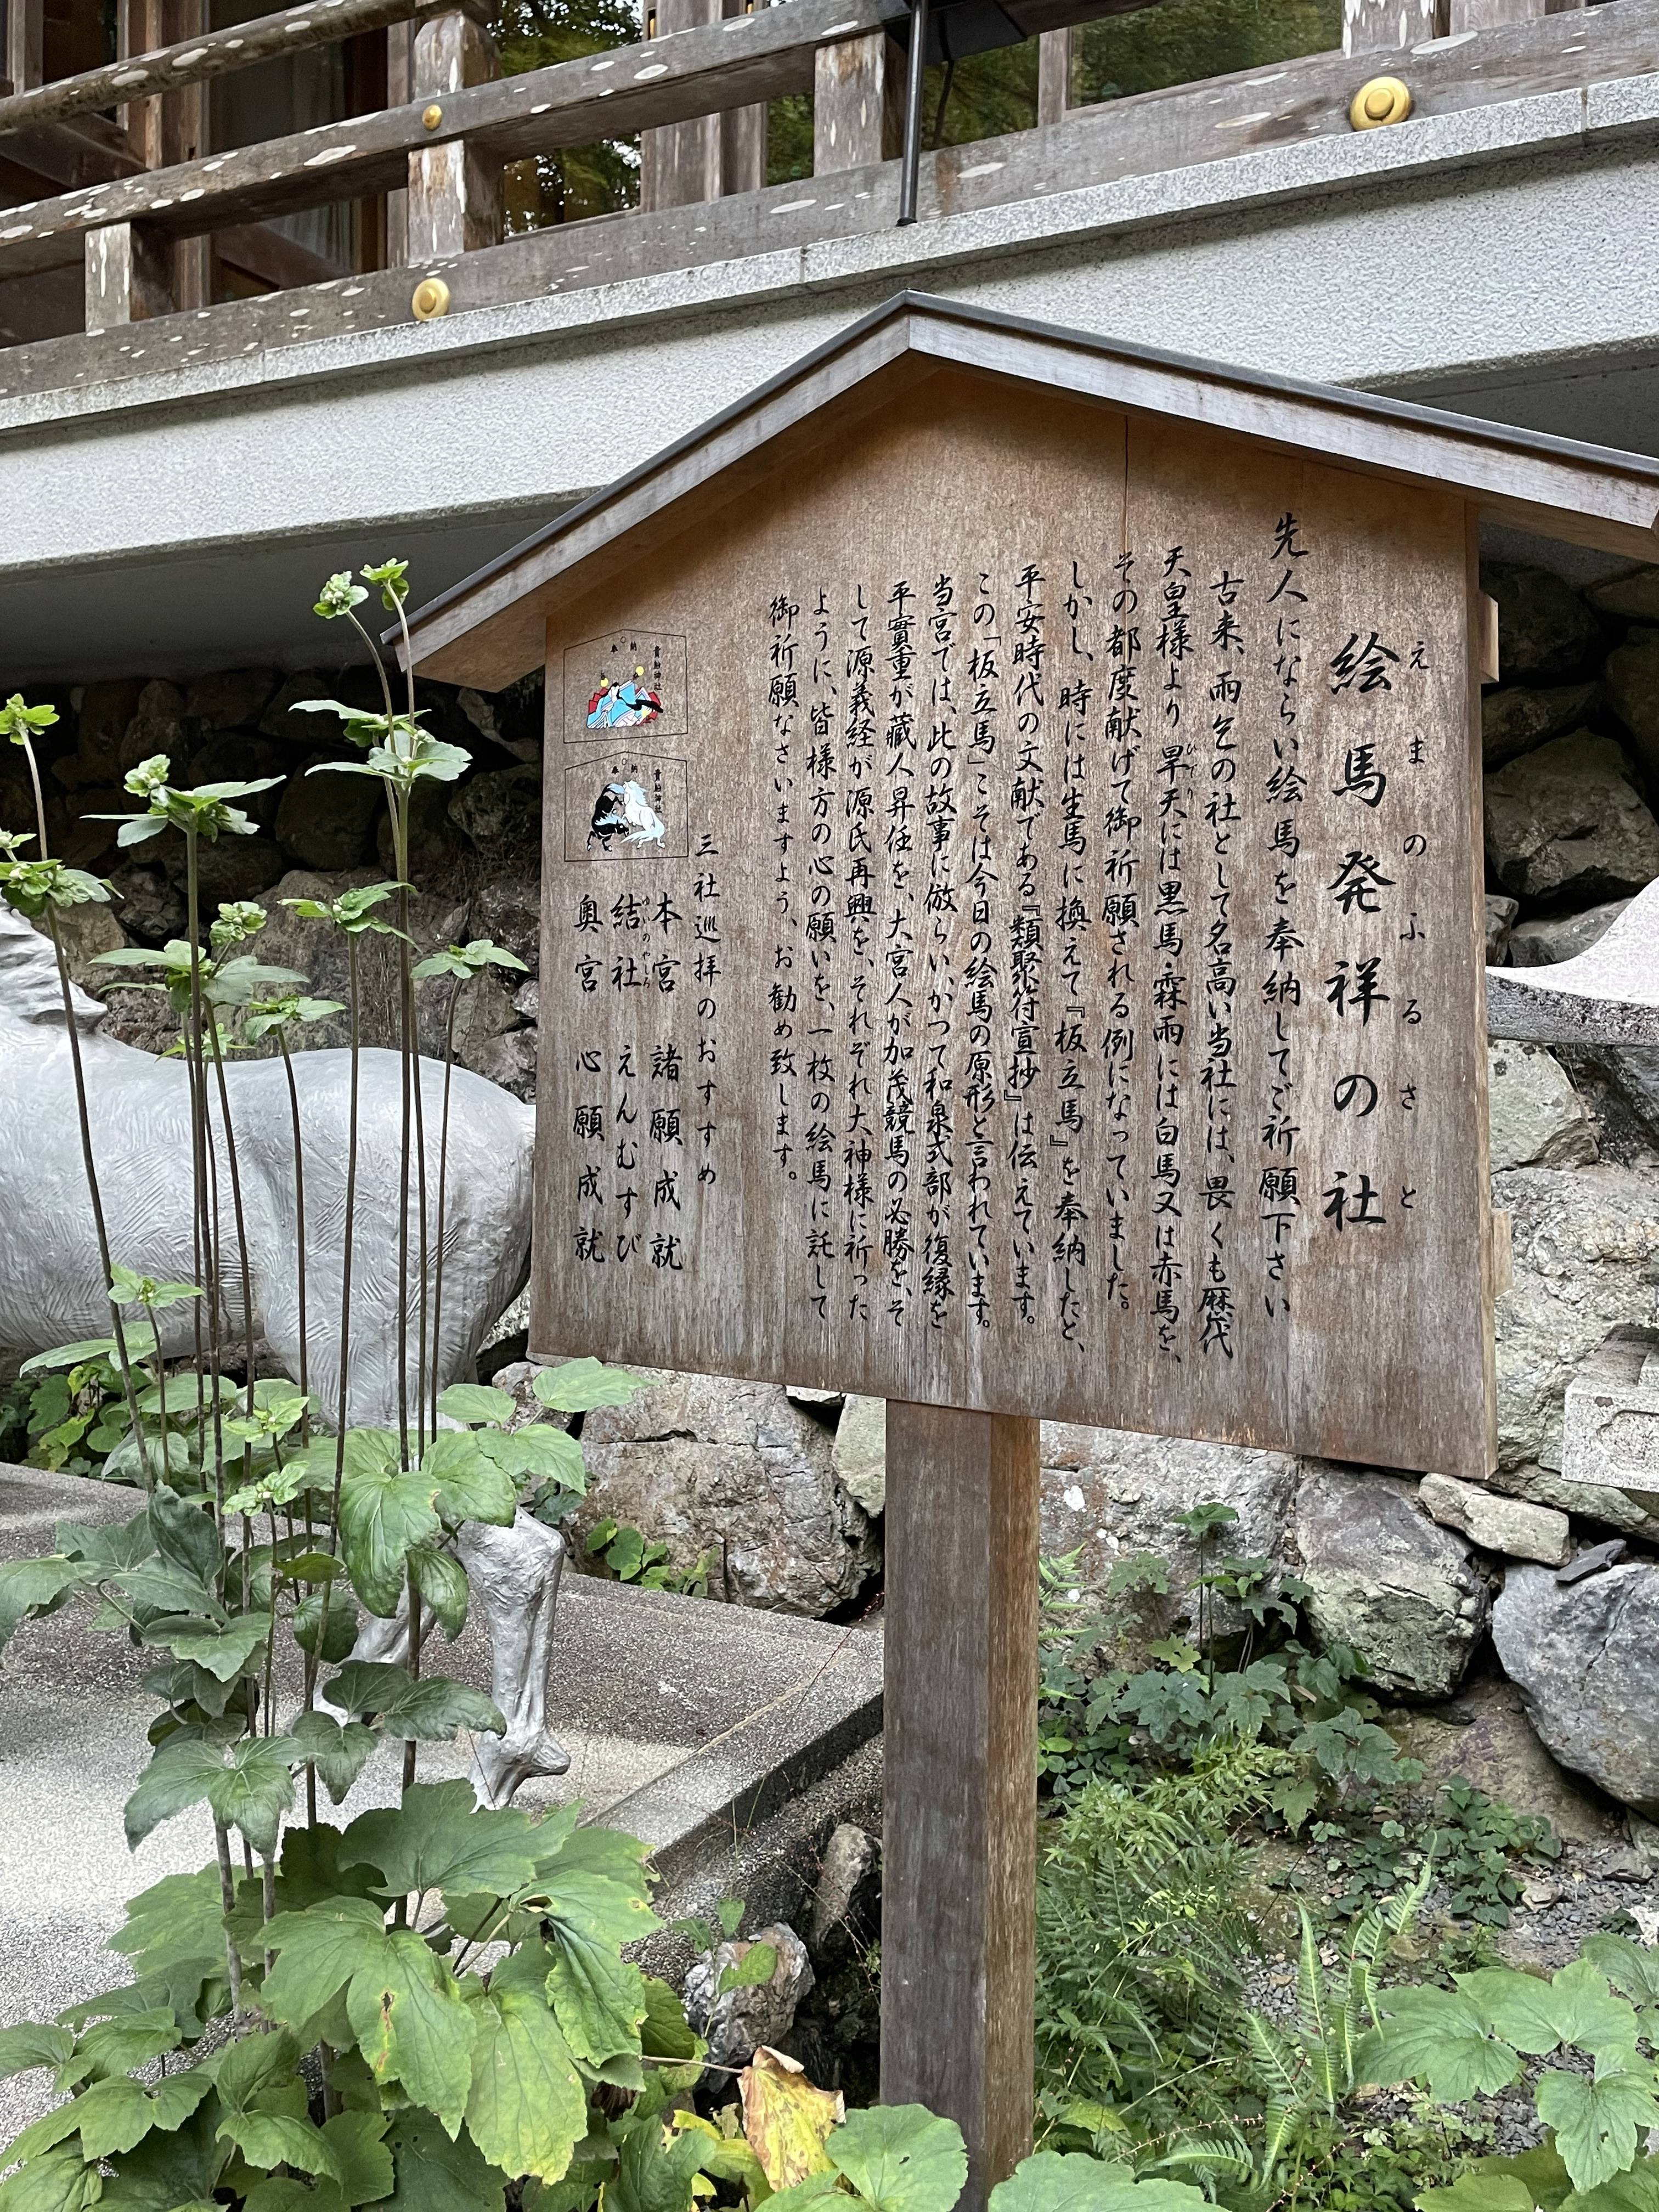 えまのふるさと
絵馬発祥の社
先人にならい絵馬を奉納してご祈願下さい
古来、雨乞の社として名高い当社には、畏くも歴代
天皇様より旱天には黒馬・霖雨には白馬又は赤馬を、
ひでり
その都度献げて御祈願される例になっていました。
しかし、時には生馬に換えて『板立馬』を奉納したと、
平安時代の文献である『類聚符宣抄』は伝えています。
この「板立馬」こそは今日の絵馬の原形と言われています。
当宮では、此の故事に倣らい、かつて和泉式部が復縁を
平實重が蔵人昇任を、大宮人が加茂競馬の必勝を、そ
して源義経が源氏再興を、それぞれ大神様に祈った
ように、皆様方の心の願いを、一枚の絵馬に託して
御祈願なさいますよう、お勧め致します。
三社巡拝のおすすめ
本宮 諸願成就
結社 えんむすび
ゆいのやしろ
奥宮 心願成就
貴船神社
奉納
貴船神社
奉納